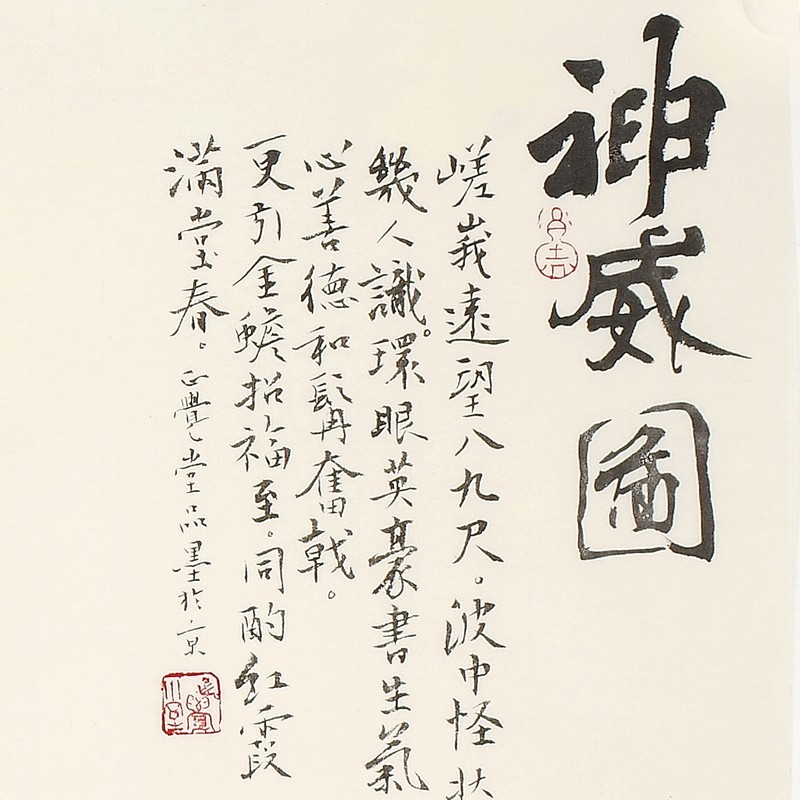 神威圖
嵯峩遠望八九尺。波中怪狀
幾人識。環眼英豪書生氣
心善德和髯奮戟。
更引金蟾招福至。同酌紅霞
滿堂春。正覺堂品墨於京